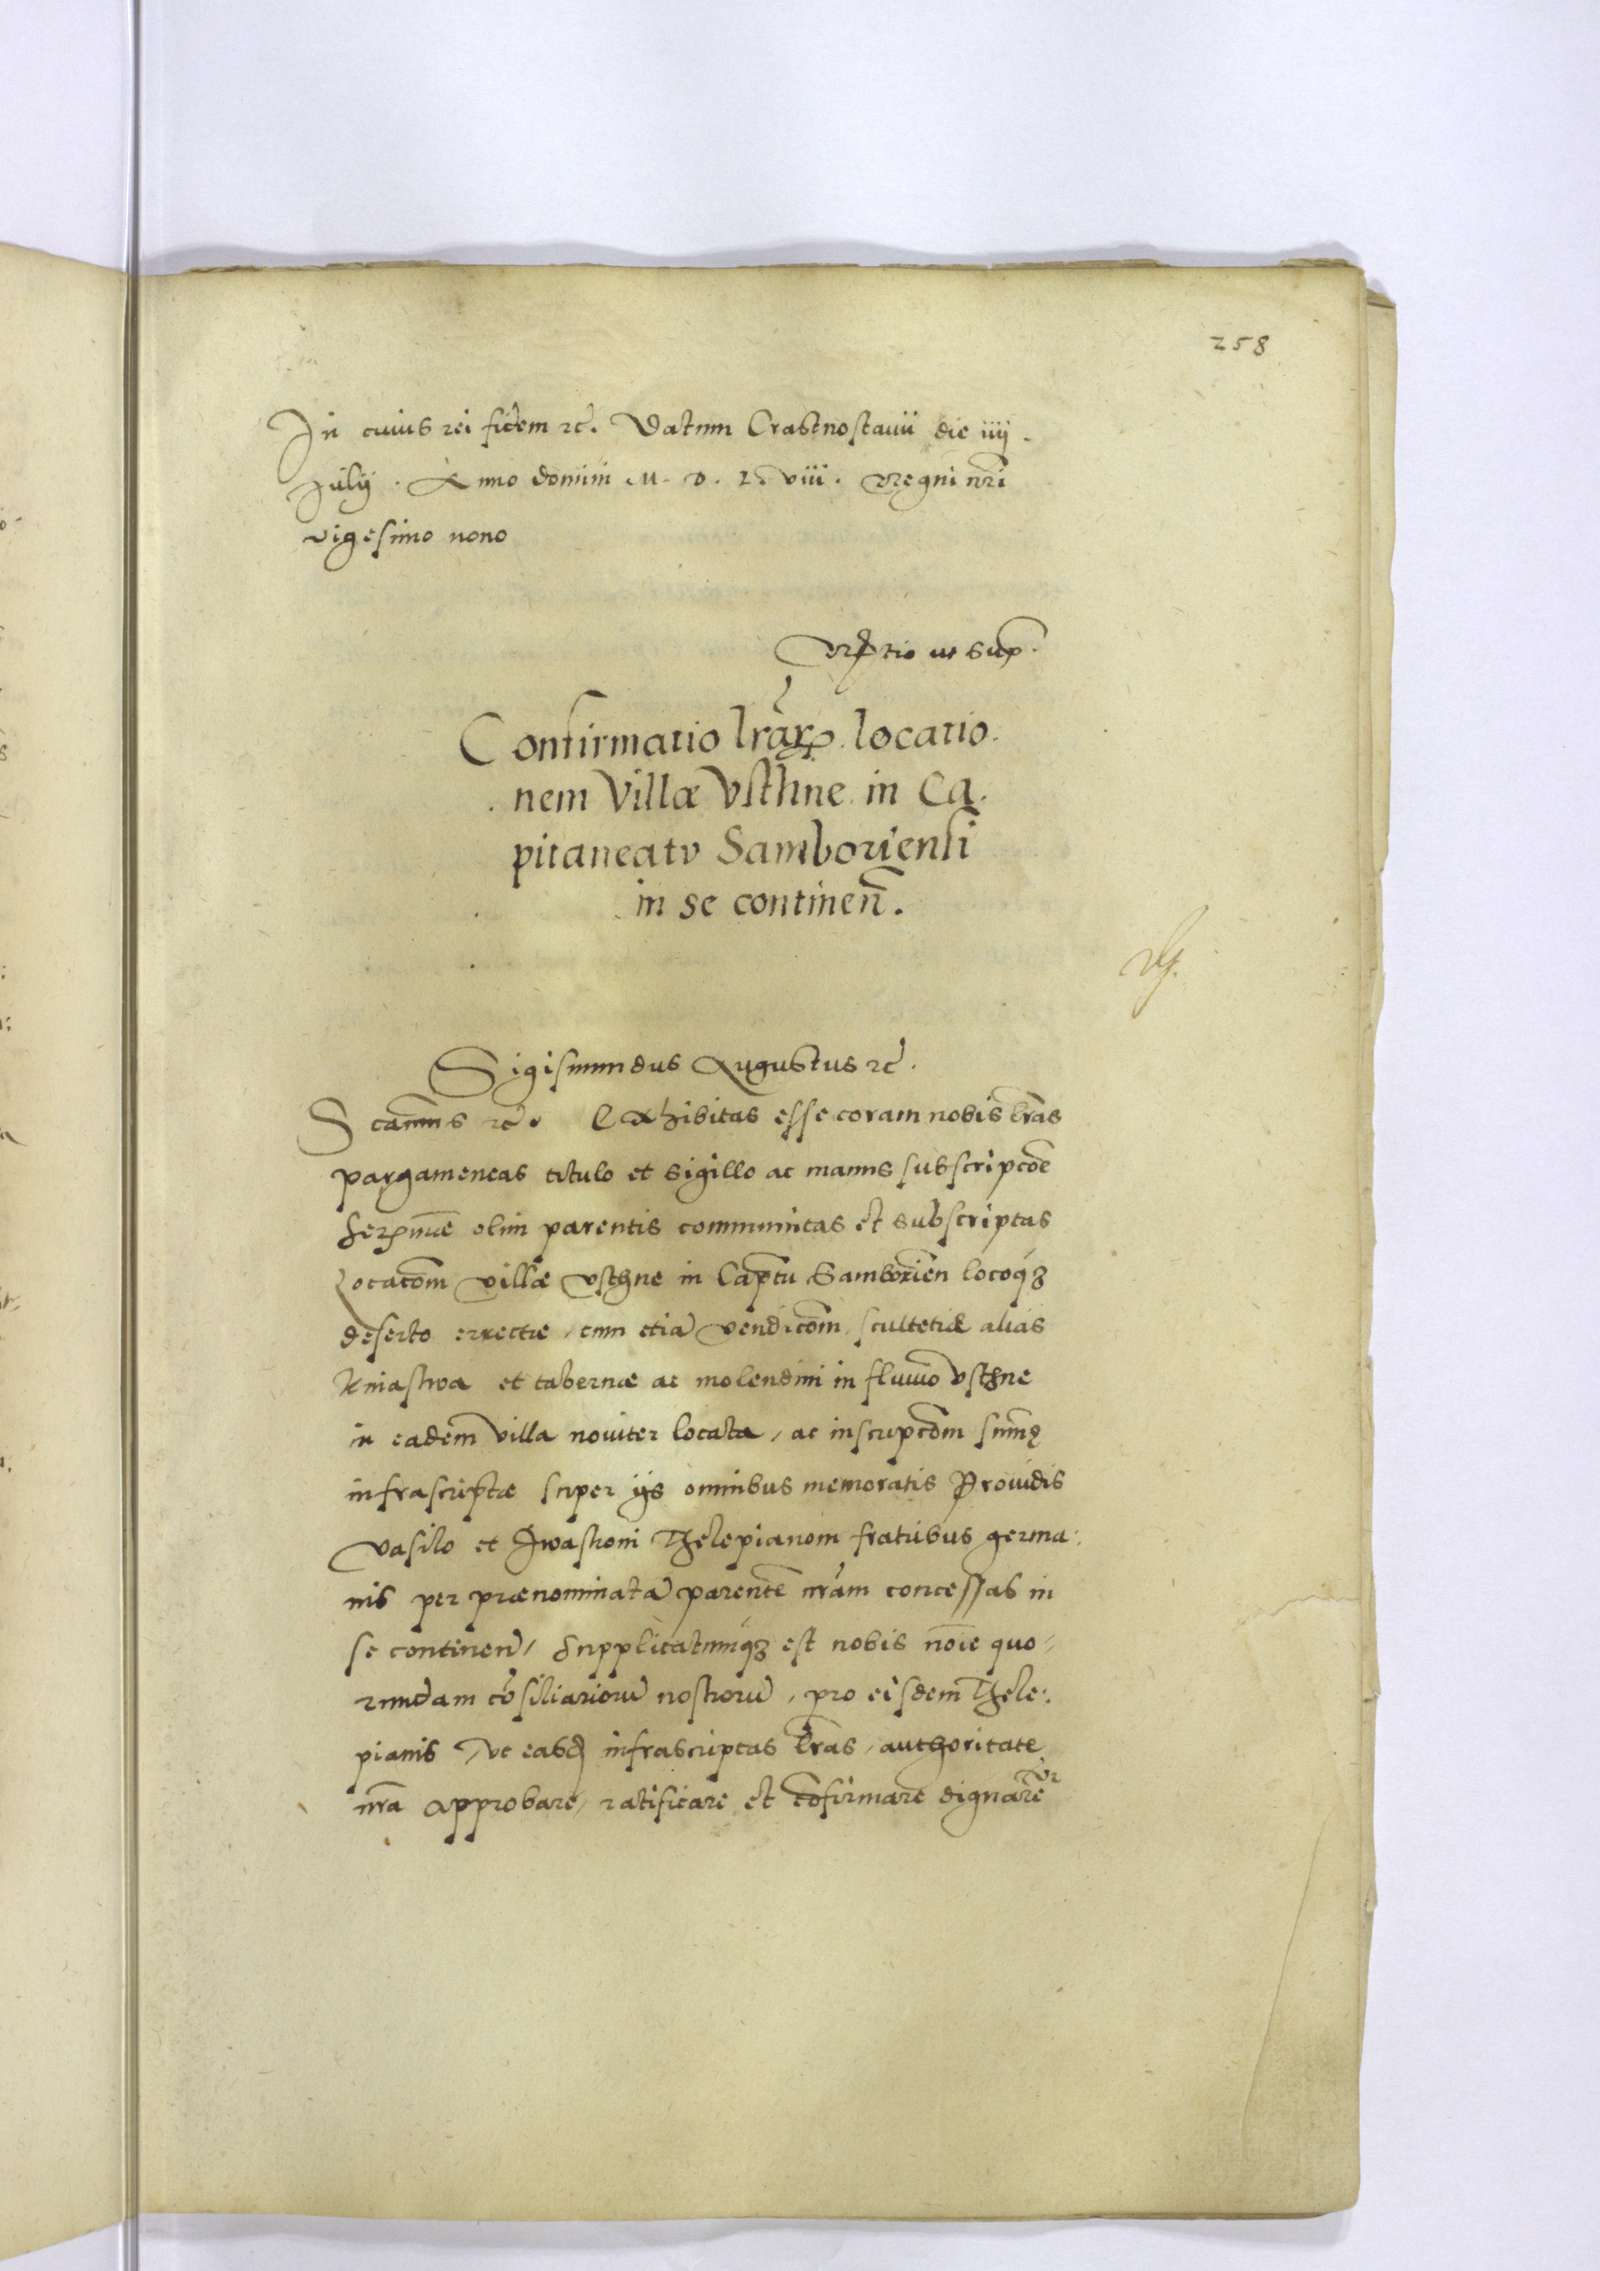 258
In cuius rei fidem rc̃. Datum Crastnostavii die iiij.
Julij. Anno domini M. D. L. viii. Regni nr̃i
vigesimo nono
Rłtio ut sup̃.
Confirmatio lr̃arꝝ. locatio.
nem Villæ Vsthne in Ca.
pitaneatv Samboriensi
in se continen̄.
Sigismundus Augustus rc̃.
S camus rc̃. Exhibitas esse coram nobis lr̃as
pargameneas titulo et sigillo ac manus subscripcõe
Ser^mi olim parentis communitas et subscriptas
Locacõm villæ Vsthne in Captu Samborien̄ locoqꝫ
deserto errectæ, cum etiã vendicõm scultetiæ alias
Kniastwa et tabernæ ac molendini in fluuio Vsthne
in eadem villa nouiter locata, ac inscripcõm summę
infrascriptæ super ijs omnibus memoratis Prouidis
Vasilo et Iwastoni Thelepianom fratribus germa:
nis per prænominatã parentẽ nr̃am concessas in
se continen̄, Supplicatumqꝫ est nobis noĩe quo-
rundam cõsiliariorũ nostrorũ, pro eisdem Thele:
pianis, ut easd̃ infrascriptas lr̃as, authoritate
nr̃a approbare, ratificare et cõfirmare dignarẽur